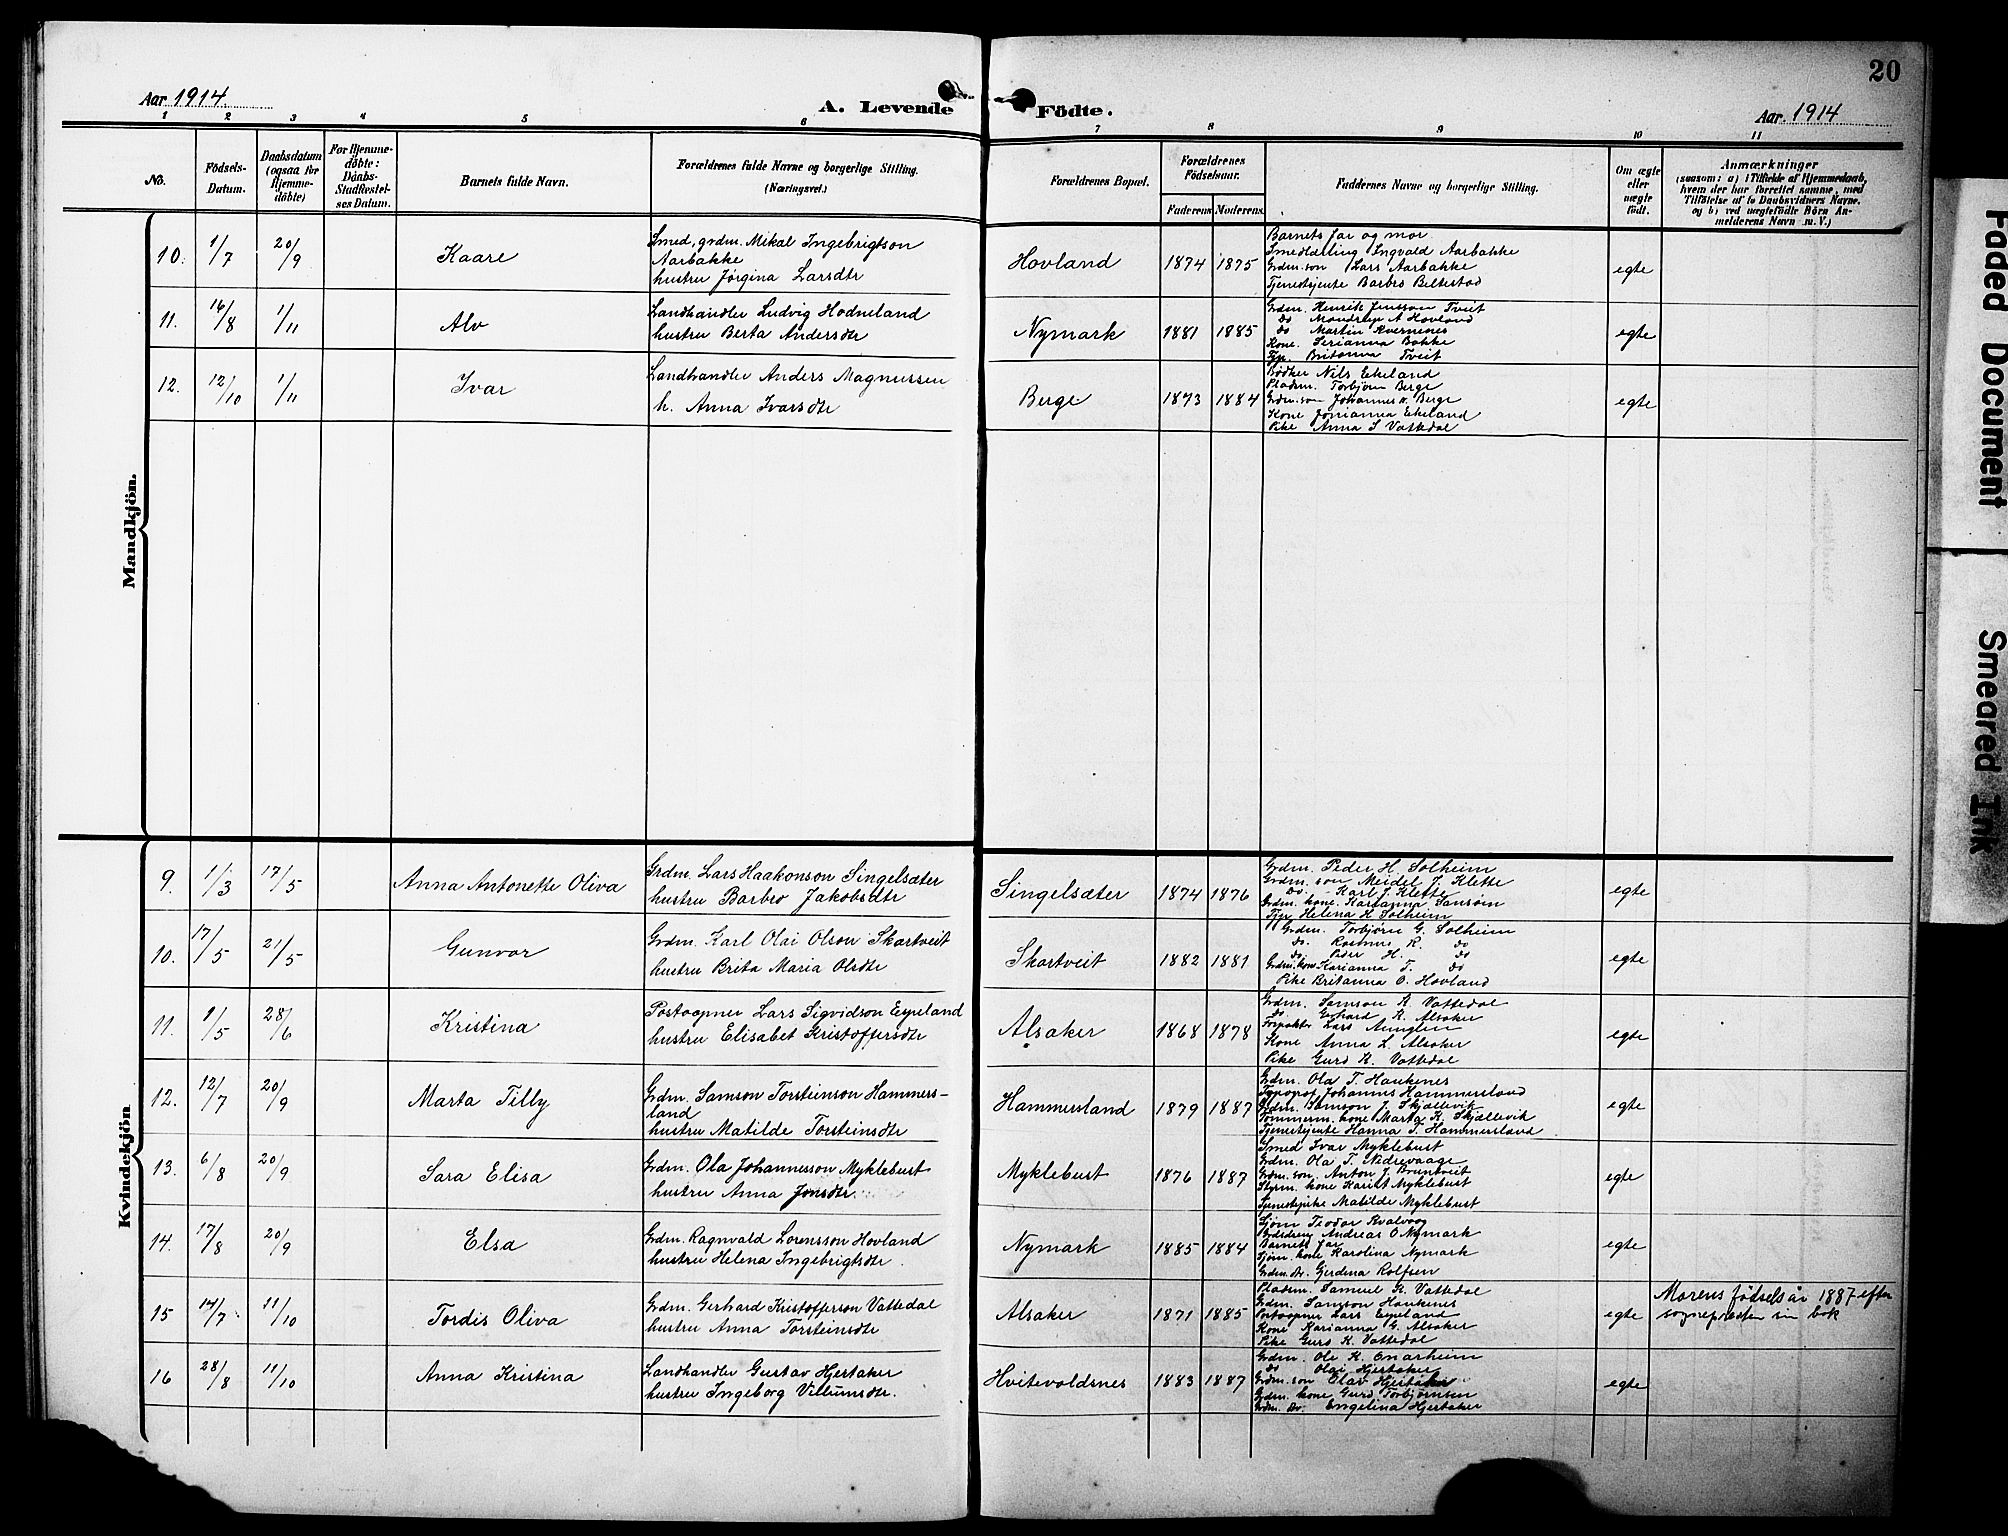 20
Aar 1914.
A. Levende Födte.
Aar. 1914
1 2 3 4 5 6 7 8 9 10 11
No.
Födsels-Datum.
Daabsdatum (ogsaa for Hjemme-döbte)
For Hjemme-döbte: Daabs-Stadfæstel-ses Datum.
Barnets fulde Navn.
Forældrenes fulde Navne og borgerlige Stilling.
(Næringsvei.)
Forældrenes Bopæl.
Forældrenes Födselsaar.
Faderens Moderens
Faddernes Navne og borgerlige Stilling.
Om ægte eller uægte födt.
Anmærkninger
(saasom: a) i Tilfælde af Hjemmedaab,
hvem der har forrettet samme, med
Tilföielse af to Daabsvidners Navne.
og b) ved uægtefödte Börn An-
melderens Navn m. V.)
Mandkjön.
10. 1/7 20/9 Kaare
Smed, grdm. Mikal Ingebrigtson
Aarbakke
hustru Jørgina Larsdtr
Hovland 1874 1875
Barnets far og mor
Smedlærling Ingvald Aarbakke
Grdm. søn Lars Aarbakke
Tjenestjente Barbro Beltestad
egte
11. 16/8 1/11 Alv
Landhandler Ludvig Hodneland
hustru Berta Andersdtr
Nymark 1881 1885
Grdm. Henrik Jensson Tveit
Do Mandrup A Hovland
do Martin Kvernenes
Kone. Serianna Bakke
Pip. Britanna Tveit
egte
12. 12/10 1/11 Ivar
Landhandler Anders Magnussen
h. Anna Ivarsdtr
Berge 1873 1884
Bødker Nils Ekeland
Pladsm. Torbjørn Berge
Grdm. søn Johannes H. Berge
Kone Jonianna Ekeland
Pike Anna S Vattedal
egte
Kvindekjön
9. 1/3 17/5 Anna Antonette Oliva
Grdm. Lars Haakonson Singelsæter
hustru Barbro Jakobsdtr
Singelsæter 1874 1876
Grdm. Peder H. Solheim
Grdm. søn Meidel J. Klette
Do. - Karl J. Klette
Grdm. kone. Karianna Sansom
Helena H Solheim
egte
10. 17/5 21/5 Gunvor
Grdm. Karl Olai Olson Skartveit
hustru Brita Maria Olsdtr
Skartveit 1882 1881
Grdm. Torbjørn G. Solheim
do. Rasmus R. do
do. Peder H. do
Grdm. kone Karianna T. do
Pike Britanna O. Hovland
egte
11. 1/5 28/6 Kristina
Postaapner Lars Sigvidson Eyeland
hustru Elisabet Kristoffersdtr
Alsaker 1868 1878
Grdm. Samson K. Vattedal
Do Gerhard K. Alsaker
Lars
Kone Anna L. Alsaker
Pike Gurd K. Vattedal
egte
12. 12/7 20/9 Marta Tilly
Grdm. Samson Torsteinson Hammers-
land
hustru Matilde Torsteinsdtr
Hammersland 1879 1887
Grdm. Ola T. Haukenes
Johannes Hammersland
Grdm. Samson J. Skjællevik
Tømmerm. kone Marta K. Skjællevik
Tjenestjente Hanna T. Hammersland
egte
13. 6/8 20/9 Sara Elisa
Grdm. Ola Johannesson Myklebust
hustru Anna Jonsdtr.
Myklebust 1876 1887
Smed Ivar Myklebust
Grdm. Ola T. Nedrevaage
Grdm. søn. Anton J. Bruntveit
Styrm. kone Karin Myklebust
Tjenestpike Matilde Myklebust
egte
14. 17/8 20/9 Elsa
Grdm. Ragnvald Lorensson Hovland
hustru Helena Ingebrigtsdtr.
Nymark 1885 1884
Sjøm Teodor Kvalvaag
Andreas O Nymark
Barnets far
Sjøm. kone Karolina Nymark
Grdm. dr. Gjerdena Rolfsen
egte
15 14/7 11/10 Tordis Oliva
Grdm. Gerhard Kristofferson Vattedal
hustru Anna Torsteinsdtr
Alsaker 1871 1885
Pladsm. Samuel K. Vattedal
Grdm. Samson Haukenes
Postaapner Lars Eyeland
Kone Karianna G. Alsaker
Pike Gurd K. Vattedal
egte
Morens fødselsår 1887 efter
sognepresten sin bok
16 28/8 11/10 Anna Kristina
Landhandler Gustav Hjertaker
hustru Ingeborg Villumsdtr.
Hvitevoldsnes 1883 1887
Grdm. Ole K. Onarheim
Do Olai Hjertaker
Grdm. søn Olav Hjertaker
Grdm. kone Gurd Torbjørnsen
Grdm. dr. Engelina Hjertaker
egte
Faded Document
Smeared Ink